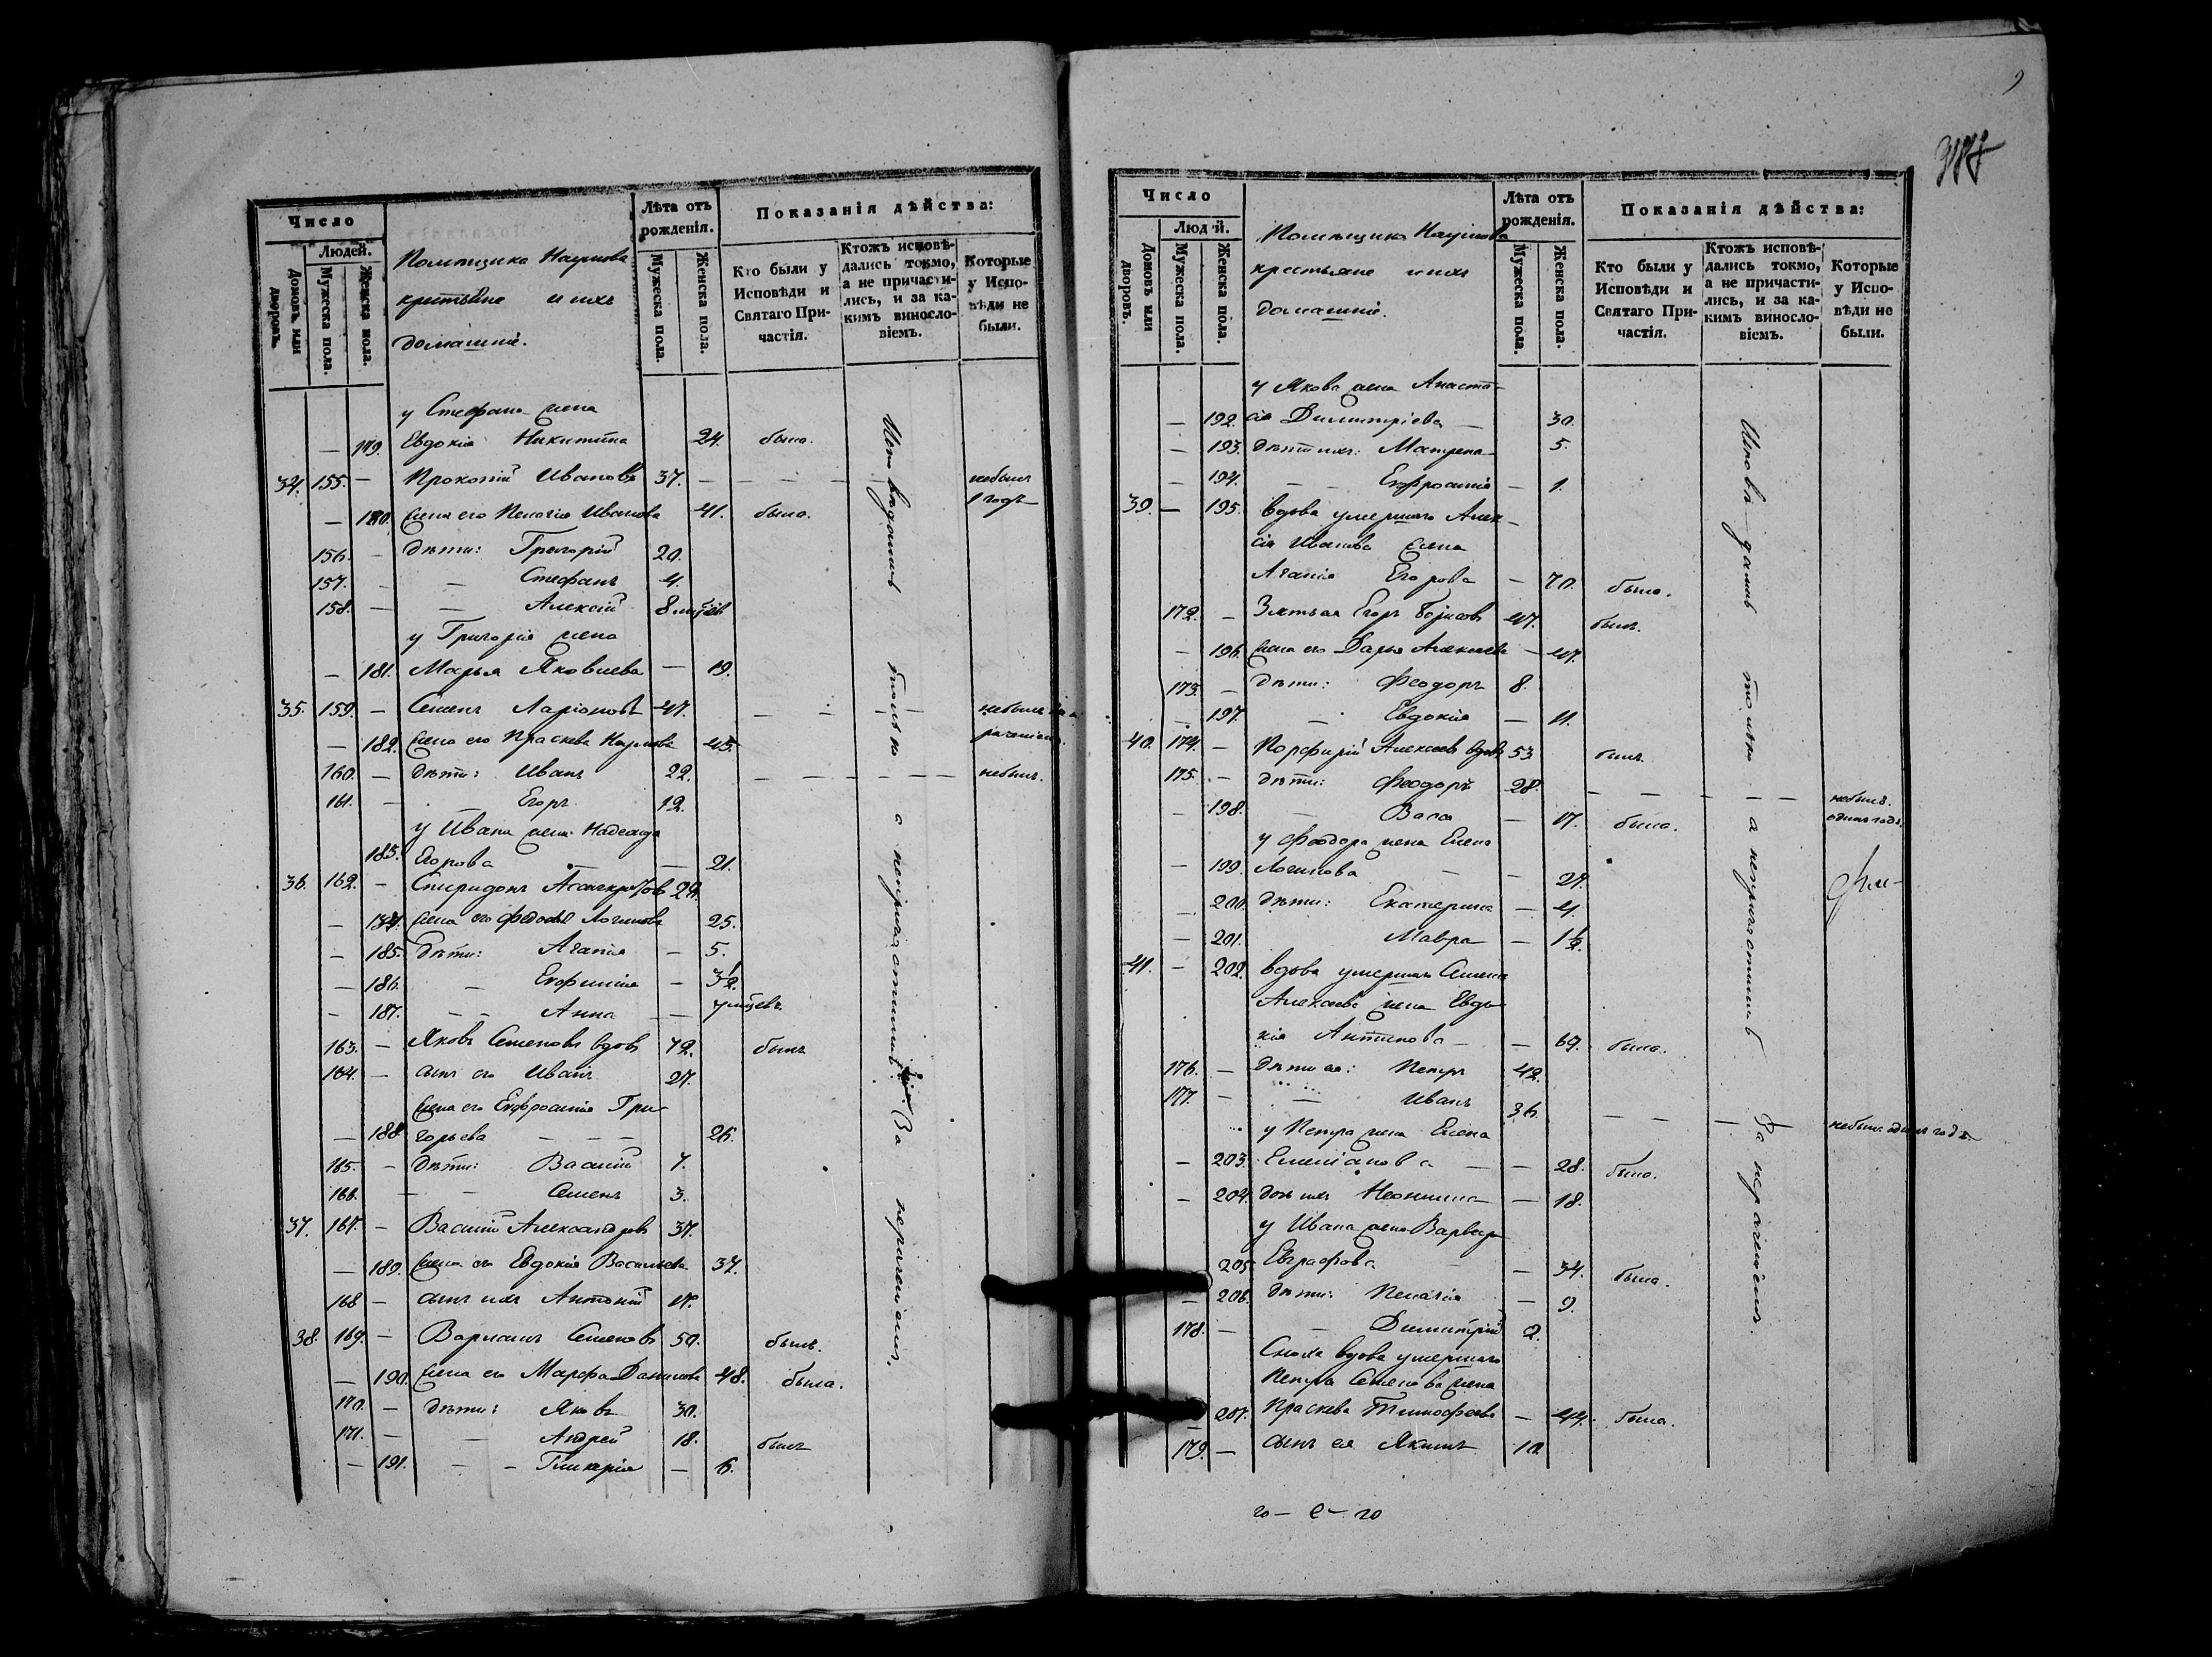 Число
Людей.
Домовъ или дворовъ.
Мужеска пола.
Женска пола.
Помѣщика Наумова
крестьяне и ихъ
домашніе.
Лѣта отъ рожденія.
Мужеска пола.
Женска пола.
Показанія дѣйства:
Кто были у Исповѣди и Святаго Причастія.
Ктожъ исповѣдались токмо, а не причастились, и за какимъ винословіемъ.
Которые у Исповѣди не были.
у Стефана жена
— 179. Евдокія Никитина 24. была.
34. 155. — Прокопій Ивановъ 37. — — — — небылъ
1 годъ
— 180. Жена его Пелагія Иванова 41. была.
156. — дѣти: Григорій 20.
157. — — Стефанъ 4.
158. — — Алексій 8 мѣсяц
у Григорія жена
— 181. Марья Яковлева — 19.
35. 159. — Семенъ Ларіоновъ 47. — — — — небылъ за н
раченіемъ.
— 182. Жена его Праскева Наумова 45.
160. — дѣти: Иванъ 22. — — — — — — небылъ.
161. — Егоръ 12.
у Ивана жена Надежда
183. Егорова — — 21.
36. 162. — Спиридонъ Асинкритовъ 24.
— 184. Жена его Федосья Логинова 25.
— 185. дѣти: Агапія — 5.
— 186. — Евфимія — 3½.
— 187. — — Анна — 7 мѣсцевъ
163. — Яковъ Семеновъ вдовъ 72. былъ
164. — сынъ его Иванъ 27.
Жена его Евфросинія Гри-
— 188. горьева — — — 26.
165. — дѣти: Василій 7.
166. — — Семенъ 3.
37. 167. — Василій Александровъ 37.
— 189. Жена его Евдокія Васильева 37.
168 — сынъ ихъ Антоній 17.
38. 169. — Варламъ Семеновъ 50. былъ.
— 190. Жена его Марфа Данилова 48. была.
170. — дѣти: Яковъ 30.
171. — — Андрей 18. былъ
— 191. — — Гликерія — 6.
Исповѣдались только а непричастились За нераченіемъ.
Число
Людей.
Домовъ или дворовъ.
Мужеска пола.
Женска пола.
Помѣщика Наумова
крестьяне и ихъ
домашніе.
Лѣта отъ рожденія.
Мужеска пола.
Женска пола.
Показанія дѣйства:
Кто были у Исповѣди и Святаго Причастія.
Ктожъ исповѣдались токмо, а не причастились, и за какимъ винословіемъ.
Которые у Исповѣди не были.
у Якова жена Анаста-
— 192. сія Димитріева — 30.
— 193. дѣти ихъ: Матрена 5.
— 194. — — Евфросинія — 1.
39. — 195. вдова умершаго Алек-
сія Иванова Жена
Агапія Егорова — 70. была.
172. — Зять ея Егоръ Борисовъ 47. былъ.
— 196. Жена его Дарья Алексѣева — 47.
173. — дѣти: Феодоръ 8.
— 197. — Евдокія — 11.
40. 174. — Порфирій Алексеевъ вдовъ 53. былъ.
175. — дѣти: Феодоръ 28. — — — — — небылъ.
одинъ годъ.
198. — Васса — 17. была.
у Феодора жена Елена
— 199. Логинова — — 24.
— 200. дѣти: Екатерина — 4.
— 201. Мавра — 1½.
41. — 202. вдова умершаго Семена
Алексѣева жена Евдо-
кія Антипова — — 69. была.
176. — дѣти ея: Петръ 42.
177. — — Иванъ 36. — — — небылъ одинъ годъ.
у Петра жена Елена
— 203. Емеліанова — — 28. была.
— 204. дочь ихъ Неонилла — 18.
у Ивана жена Варвара
205. Евграфова — 34. была.
— 206. дѣти: Пелагія — 9.
178. — — Димитрій 2.
Сноха вдова умершаго
Петра Семенова жена
— 207. Праскева Тимофеева — 44. была.
179. — сынъ ея Якимъ 10.
Исповѣдались только а непричастились За нераченіемъ.